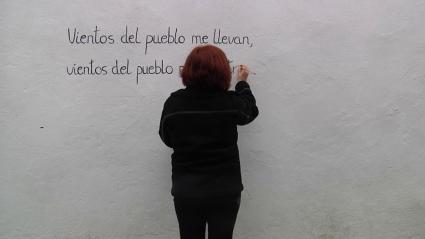 Vientos del pueblo me llevan,
vientos del pueblo